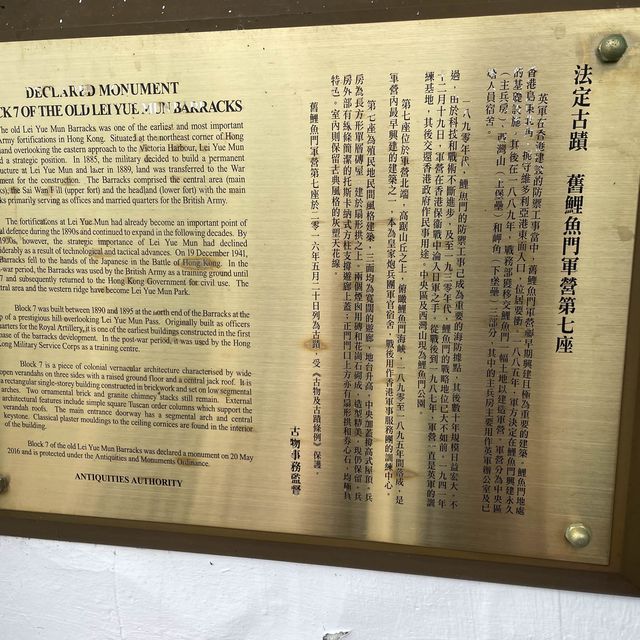 DECLARED MONUMENT
CK 7 OF THE OLD LEI YUE MUN BARRACKS
The old Lei Yue Mun Barracks was one of the earliest and most important
Army fortifications in Hong Kong. Situated at the northeast corner of Hong
and overlooking the eastern approach to the Victoria Harbour, Lei Yue Mun
d a strategic position. In 1885, the military decided to build a permanent
ructure at Lei Yue Mun and laker in 1889, land was transferred to the War
ment for the construction. The Barracks comprised the central area (main
s), the Sai Wan Fill (upper fort) and the headland (lower fort) with the main
ks primarily serving as offices and married quarters for the British Army.
The fortifications at Lei Yue Mun had already become an important point of
al defence during the 1890s and continued to expand in the following decades. By
1930s, however, the strategic importance of Lei Yue Mun had declined
iderably as a result of technological and tactical advances. On 19 December 1941,
Barracks fell to the hands of the Japanese in the Battle of Hong Kong. In the
-war period, the Barracks was used by the British Army as a training ground until
7 and subsequently returned to the Hong Kong Government for civil use. The
ntral area and the western ridge have become Lei Yue Mun Park.
Block 7 was built between 1890 and 1895 at the north end of the Barracks at the
p of a prestigious hill overlooking Lei Yue Mun Pass. Originally built as officers
uarters for the Royal Artillery, it is one of the earliest buildings constructed in the first
hase of the barracks development. In the post-war period, it was used by the Hong
Long Military Service Corps as a training centre.
Block 7 is a piece of colonial vernacular architecture characterised by wide-
open verandahs on three sides, with a raised ground floor and a central jack roof. It is
a rectangular single-storey building constructed in brickwork and set on low segmental
arches. Two ornamental brick and granite chimney stacks still remain. External
architectural features include simple square Tuscan order columns which support the
verandah roofs. The main entrance doorway has a segmental arch and central
keystone. Classical plaster mouldings to the ceiling cornices are found in the interior
of the building.
Block 7 of the old Lei Yue Mun Barracks was declared a monument on 20 May
2016 and is protected under the Antiquities and Monuments Ordinance.
ANTIQUITIES AUTHORITY
法定古蹟 舊鯉魚門軍營第七座
英軍在香港建設的防禦工事當中，舊鯉魚門軍營屬早期興建且極為重要的建築。鯉魚門地處
香港島東北角，扼守維多利亞港東面入口，位居要衝。一八八五年，軍方決定在鯉魚門興建永久
的基礎設施，其後在一八八九年，戰務部獲移交鯉魚門一幅土地以建造軍營。軍營分為中央區
（主兵房）、西灣山（上保壘）和岬角（下堡壘）三部分，其中的主兵房主要用作英軍辦公室及已
婚人員宿舍。
一八九零年代，鯉魚門的防禦工事已成為重要的海防據點，其後數十年規模日益宏大。不
過，由於科技和戰術不斷進步，及至一九三零年代，鯉魚門的戰略地位已大不如前。一九四一年
十二月十九日，軍營在香港保衛戰中淪入日軍之手。從戰後到一九八七年，軍營一直是英軍的訓
練基地，其後交還香港政府作民事用途。中央區及西灣山現為鯉魚門公園。
第七座位於軍營北端，高踞山丘之上，俯瞰鯉魚門海峽，一八九零至一八九五年間落成，是
軍營內最早興建的建築之一，本為皇家炮兵團軍官宿舍，戰後用作香港軍事服務團的訓練中心。
第七座為殖民地民間風格建築，三面均為寬闊的遊廊，地台升高，中央加蓋撐高式屋頂。兵
房為長方形單層磚屋，建於扇形拱之上，兩個煙囪用磚和花崗石砌成，造型精美，現仍保留。兵
房外部有線條簡潔的托斯卡納式方柱支撐遊廊上蓋，正門門口上方亦有扇形拱和券心石，均極具
特色。室內則保留古典風格的灰塑天花線。
舊鯉魚門軍營第七座於二零一六年五月二十日列為古蹟，受《古物及古蹟條例》保護。
古物事務監督